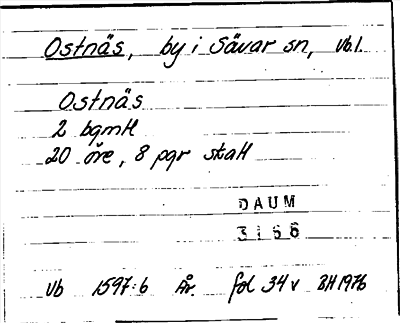 Ostnäs, by i Sävar sn, Vb.l.
Ostnäs
2 bgmH
20 öre, 8 pgr skaH
DAUM
3166
Vb 1597:6 År. fol 34 v BH 1976